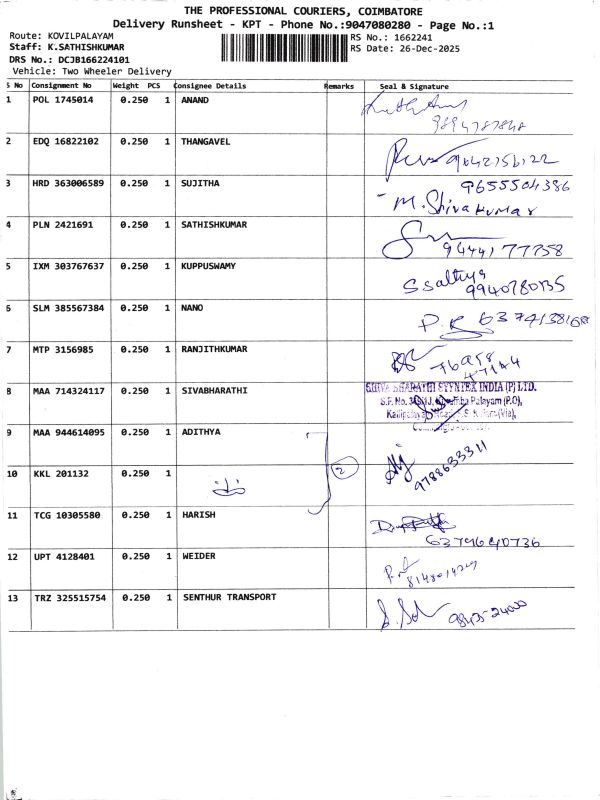 THE PROFESSIONAL COURIERS, COIMBATORE
Delivery Runsheet - KPT - Phone No.:9047080280 - Page No.:1
Route: KOVILPALAYAM
RS No.: 1662241
Staff: K.SATHISHKUMAR
RS Date: 26-Dec-2025
DRS No.: DCJB166224101
Vehicle: Two Wheeler Delivery
S No Consignment No Weight PCS Consignee Details Remarks Seal & Signature
1 POL 1745014 0.250 1 ANAND
2 EDQ 16822102 0.250 1 THANGAVEL
3 HRD 363006589 0.250 1 SUJITHA 9655504386
M.Shivakumar
4 PLN 2421691 0.250 1 SATHISHKUMAR
9444177758
5 IXM 303767637 0.250 1 KUPPUSWAMY
6 SLM 385567384 0.250 1 NANO
7 MTP 3156985 0.250 1 RANJITHKUMAR
8 MAA 714324117 0.250 1 SIVABHARATHI SHIVA BHARATHI SYNTEX INDIA (P) LTD.
9 MAA 944614095 0.250 1 ADITHYA
9788633311
10 KKL 201132 0.250 1 2
11 TCG 10305580 0.250 1 HARISH
6379640736
12 UPT 4128401 0.250 1 WEIDER
13 TRZ 325515754 0.250 1 SENTHUR TRANSPORT